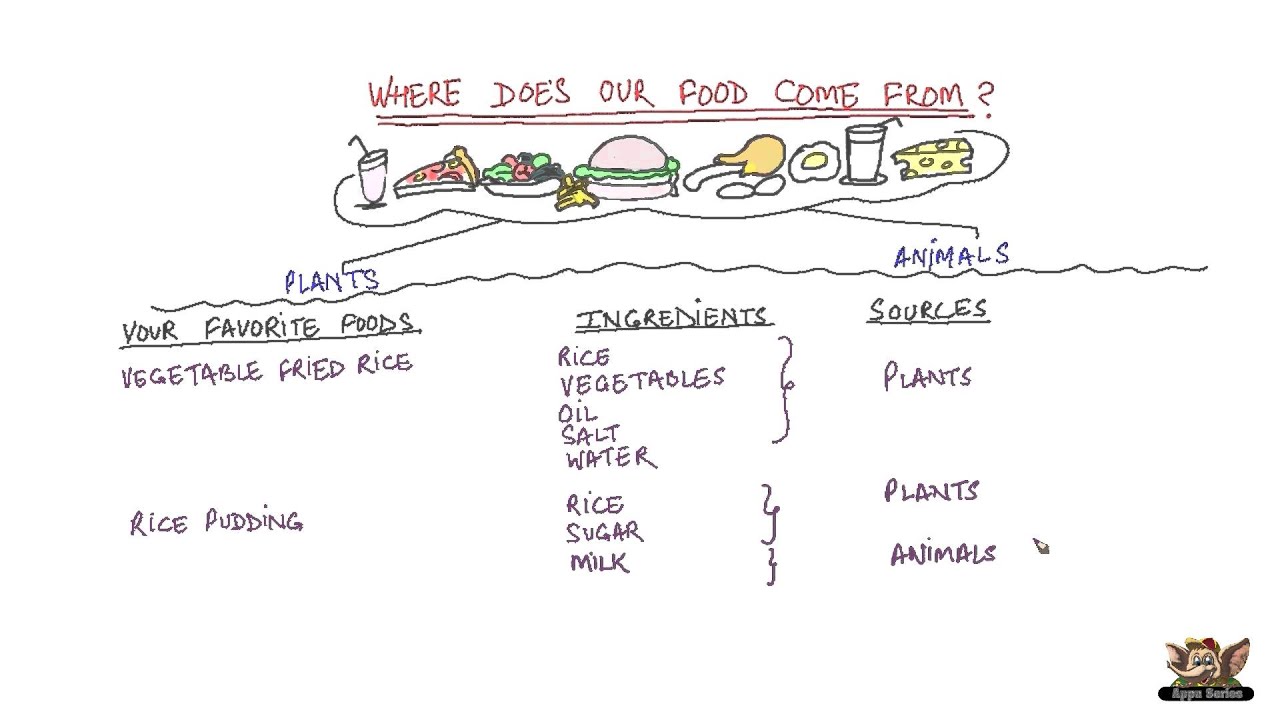 WHERE DOES OUR FOOD COME FROM?
PLANTS
ANiMALS
YOUR FAVORITE FOODS
INGREDiENTS
SOURCES
VEGETABLE FRiED RiCE
RiCE
VEGETABLES
OiL
SALT
WATER
PLANTS
RiCE PUDDiNG
RiCE
SUGAR
MiLK
PLANTS
ANiMALS
Appu Series